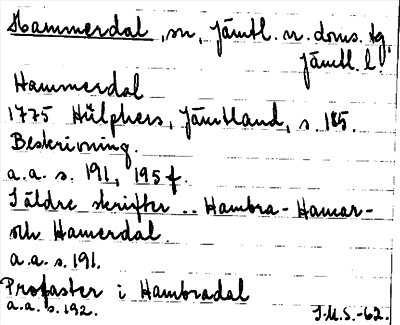 Hammerdal, sn, Jämtl. n. doms. tg,
Jämtl. l.
Hammerdal
1775 Hülphers, Jämtland, s. 185.
Beskrivning.
a.a. s. 191, 195 f.
I äldre skrifter .. Hambra- Hamar-
och Hamerdal
a.a. s. 191.
Profaster i Hambradal
a.a. s. 192.
J.M.S.-62.